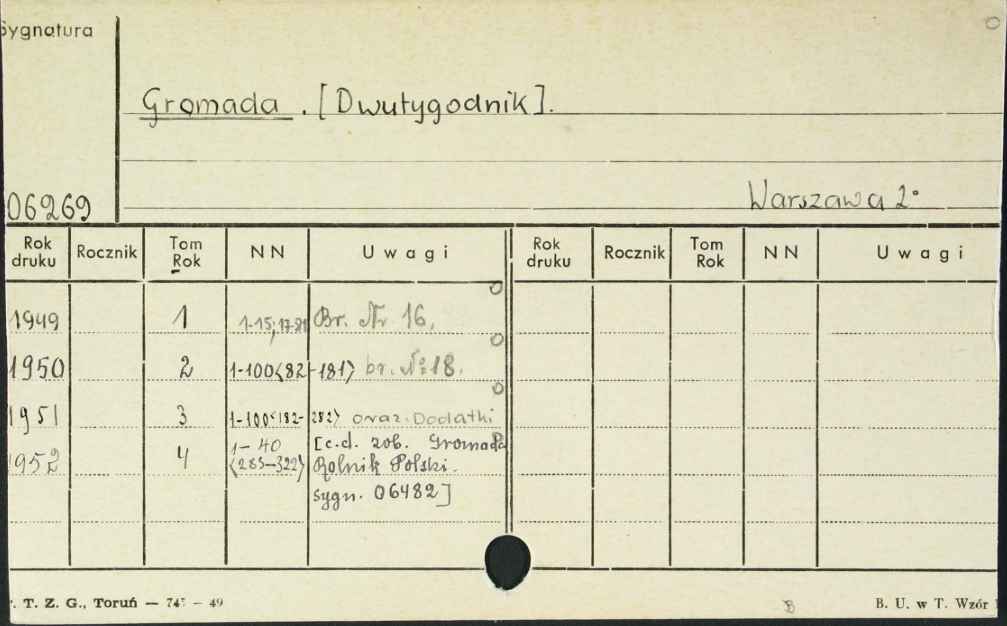 Sygnatura
Gromada. [Dwutygodnik].
06269
Warszawa 2°
Rok druku Rocznik Tom Rok NN Uwagi Rok druku Rocznik Tom Rok NN Uwagi
1949 1 1-15; 17-81 Br. Nr 16.
1950 2 1-100<82-181> br. № 18.
1951 3 1-100<182-282> oraz. Dodatki
1952 4 1-40 <283-322> [c.d. zob. Gromada
Rolnik Polski.
sygn. 06482]
T. Z. G., Toruń — 745 – 49
B. U. w T. Wzór